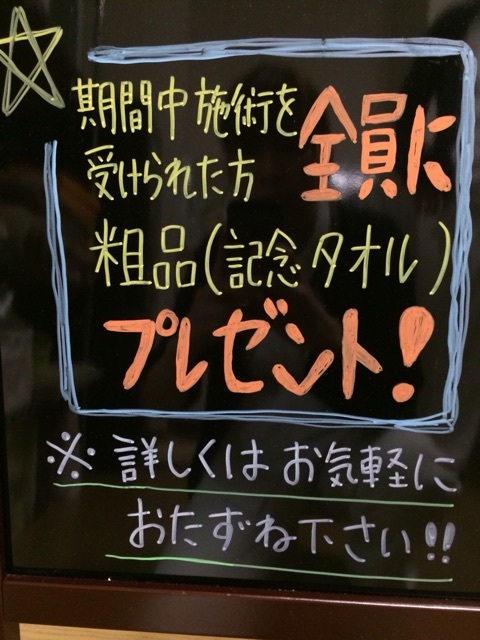 期間中施術を
受けられた方 全員に
粗品(記念タオル)
プレゼント!
※ 詳しくはお気軽に
おたずね下さい!!